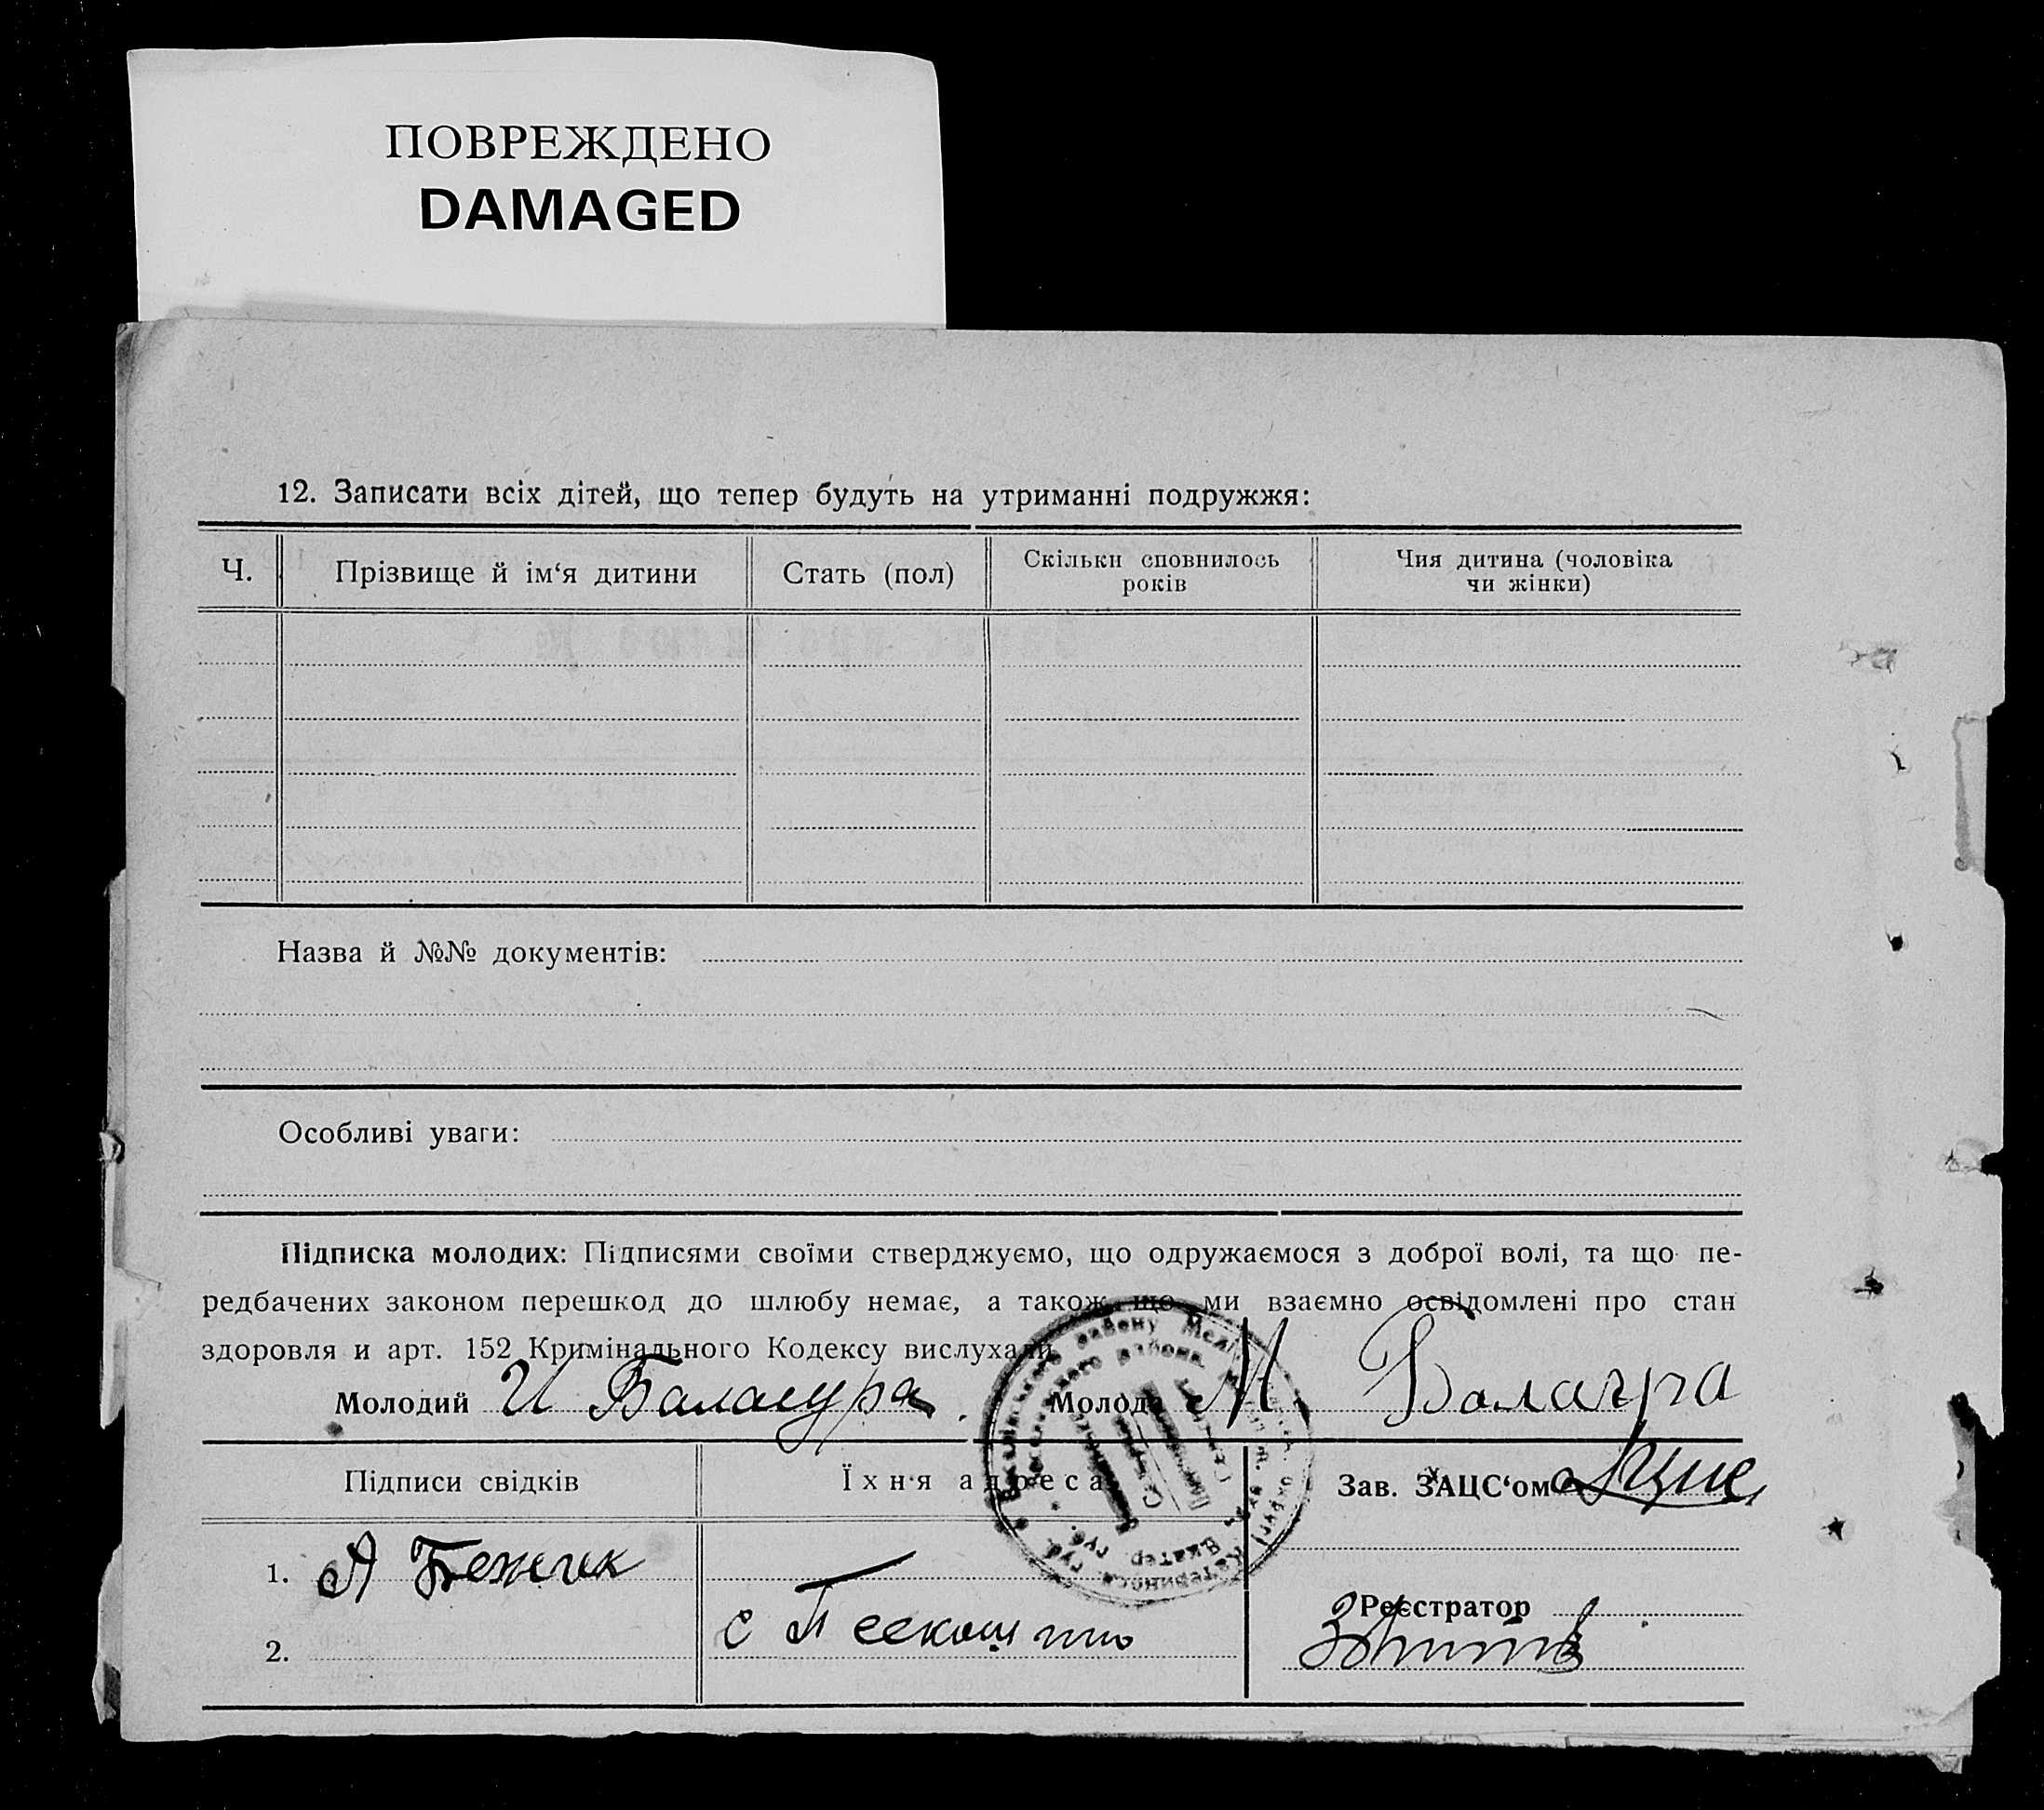 ПОВРЕЖДЕНО
DAMAGED
12. Записати всіх дітей, що тепер будуть на утриманні подружжя:
Ч. Прізвище й ім‘я дитини Стать (пол) Скільки сповнилось років Чия дитина (чоловіка чи жінки)
Назва й №№ документів:
Особливі уваги:
Підписка молодих: Підписями своїми стверджуємо, що одружаємося з доброї волі, та що пе-
редбачених законом перешкод до шлюбу немає, а також що ми взаємно освідомлені про стан
здоровля и арт. 152 Кримінального Кодексу вислухали
Молодий И Балацура Молода М
Підписи свідків Їхня адреса Зав. ЗАЦС‘ом
1. А
Реєстратор
2. с